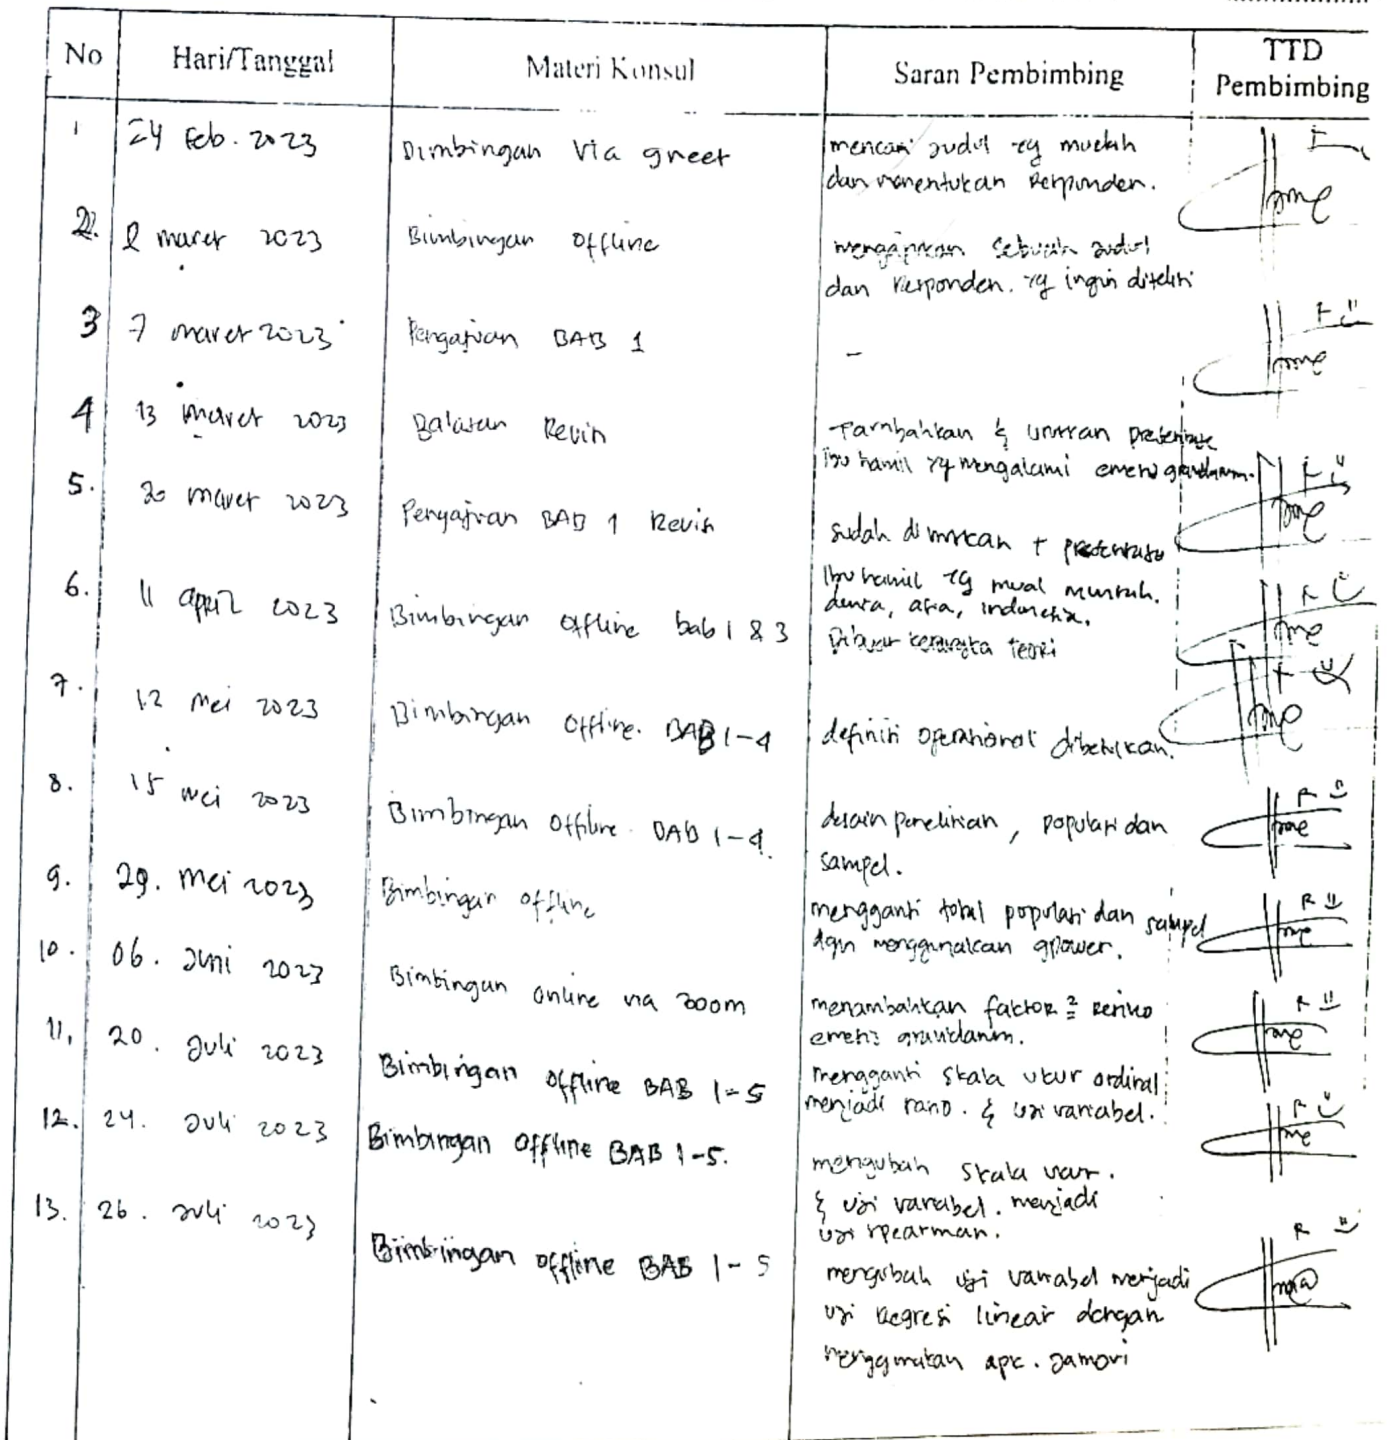 No Hari/Tanggal Materi Konsul Saran Pembimbing TTD Pembimbing
1 24 Feb. 2023 Bimbingan Via gmeet mencari judul yg mudah
dan menentukan Responden.
2. 2 maret 2023 Bimbingan Offline mengajukan sebuah judul
dan Responden. yg ingin diteliti
3 7 maret 2023 Pengajuan BAB 1 -
4 13 maret 2023 Balasan Revisi Tambahkan & uraikan presentase
ibu hamil yg mengalami emesis gravidarum.
5. 20 maret 2023 Pengajuan BAB 1 Revisi sudah di + presentase
Ibu hamil yg mual muntah.
dunia, asia, indonesia.
6. 11 april 2023 Bimbingan offline bab 1 & 3 Dibuat kerangka teori
7. 12 mei 2023 Bimbingan Offline. BAB 1-4 definisi operasional dibetulkan.
8. 15 mei 2023 Bimbingan Offline. BAB 1-4. desain penelitian, populasi dan
sampel.
9. 29. mei 2023 Bimbingan offline mengganti total populasi dan sampel
dgn menggunakan gpower.
10. 06. Juni 2023 Bimbingan online via zoom menambahkan faktor2 Resiko
emesis gravidarum.
11. 20. Juli 2023 Bimbingan offline BAB 1-5 mengganti skala ukur ordinal
menjadi rasio. & uji variabel.
12. 24. Juli 2023 Bimbingan offline BAB 1-5. mengubah skala ukur.
& uji variabel. menjadi
uji spearman.
13. 26. Juli 2023 Bimbingan offline BAB 1-5 mengubah uji variabel menjadi
uji Regresi linear dengan
menggunakan apk. Jamovi